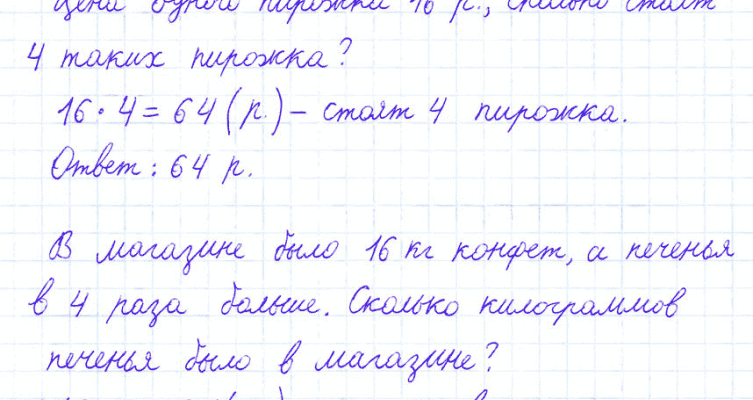 Цена одного пирожка 16 р., сколько стоят
4 таких пирожка?
16 · 4 = 64 (р.) – стоят 4 пирожка.
Ответ: 64 р.
В магазине было 16 кг конфет, а печенья
в 4 раза больше. Сколько килограммов
печенья было в магазине?